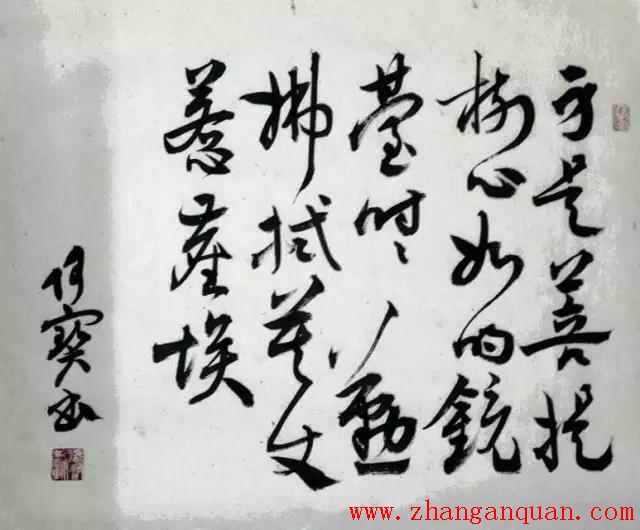 身是菩提
樹心如明鏡
臺時〻勤
拂拭莫使
惹塵埃
何寶書
www.zhanganquan.com